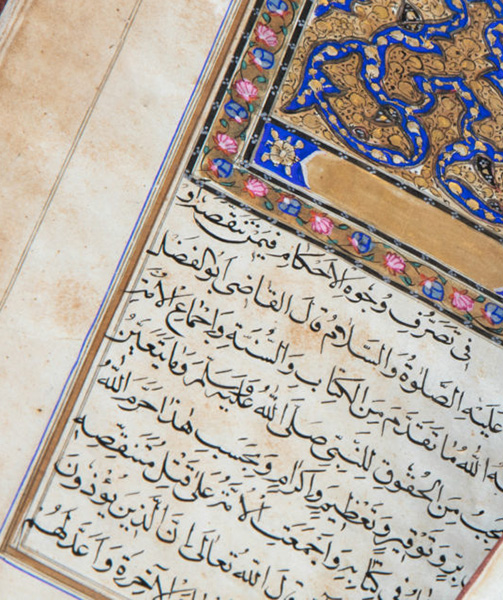 فى تصرف وجوه الاحكام فيمن تنقصه او
عليه الصلوة والسلام قال القاضى ابوالفضل
الله ما تقدم من الكتاب والسنة واجماع الامة
من الحقوق للنبى صلى الله عليه وسلم وما يتعين
بر وتوقير وتعظيم واكرام وبحسب هذا حرم الله
فى كتابه واجمعت الامة على قتل متنقصه
الله تعالى ان الذين يؤذون
الاخرة واعد لهم